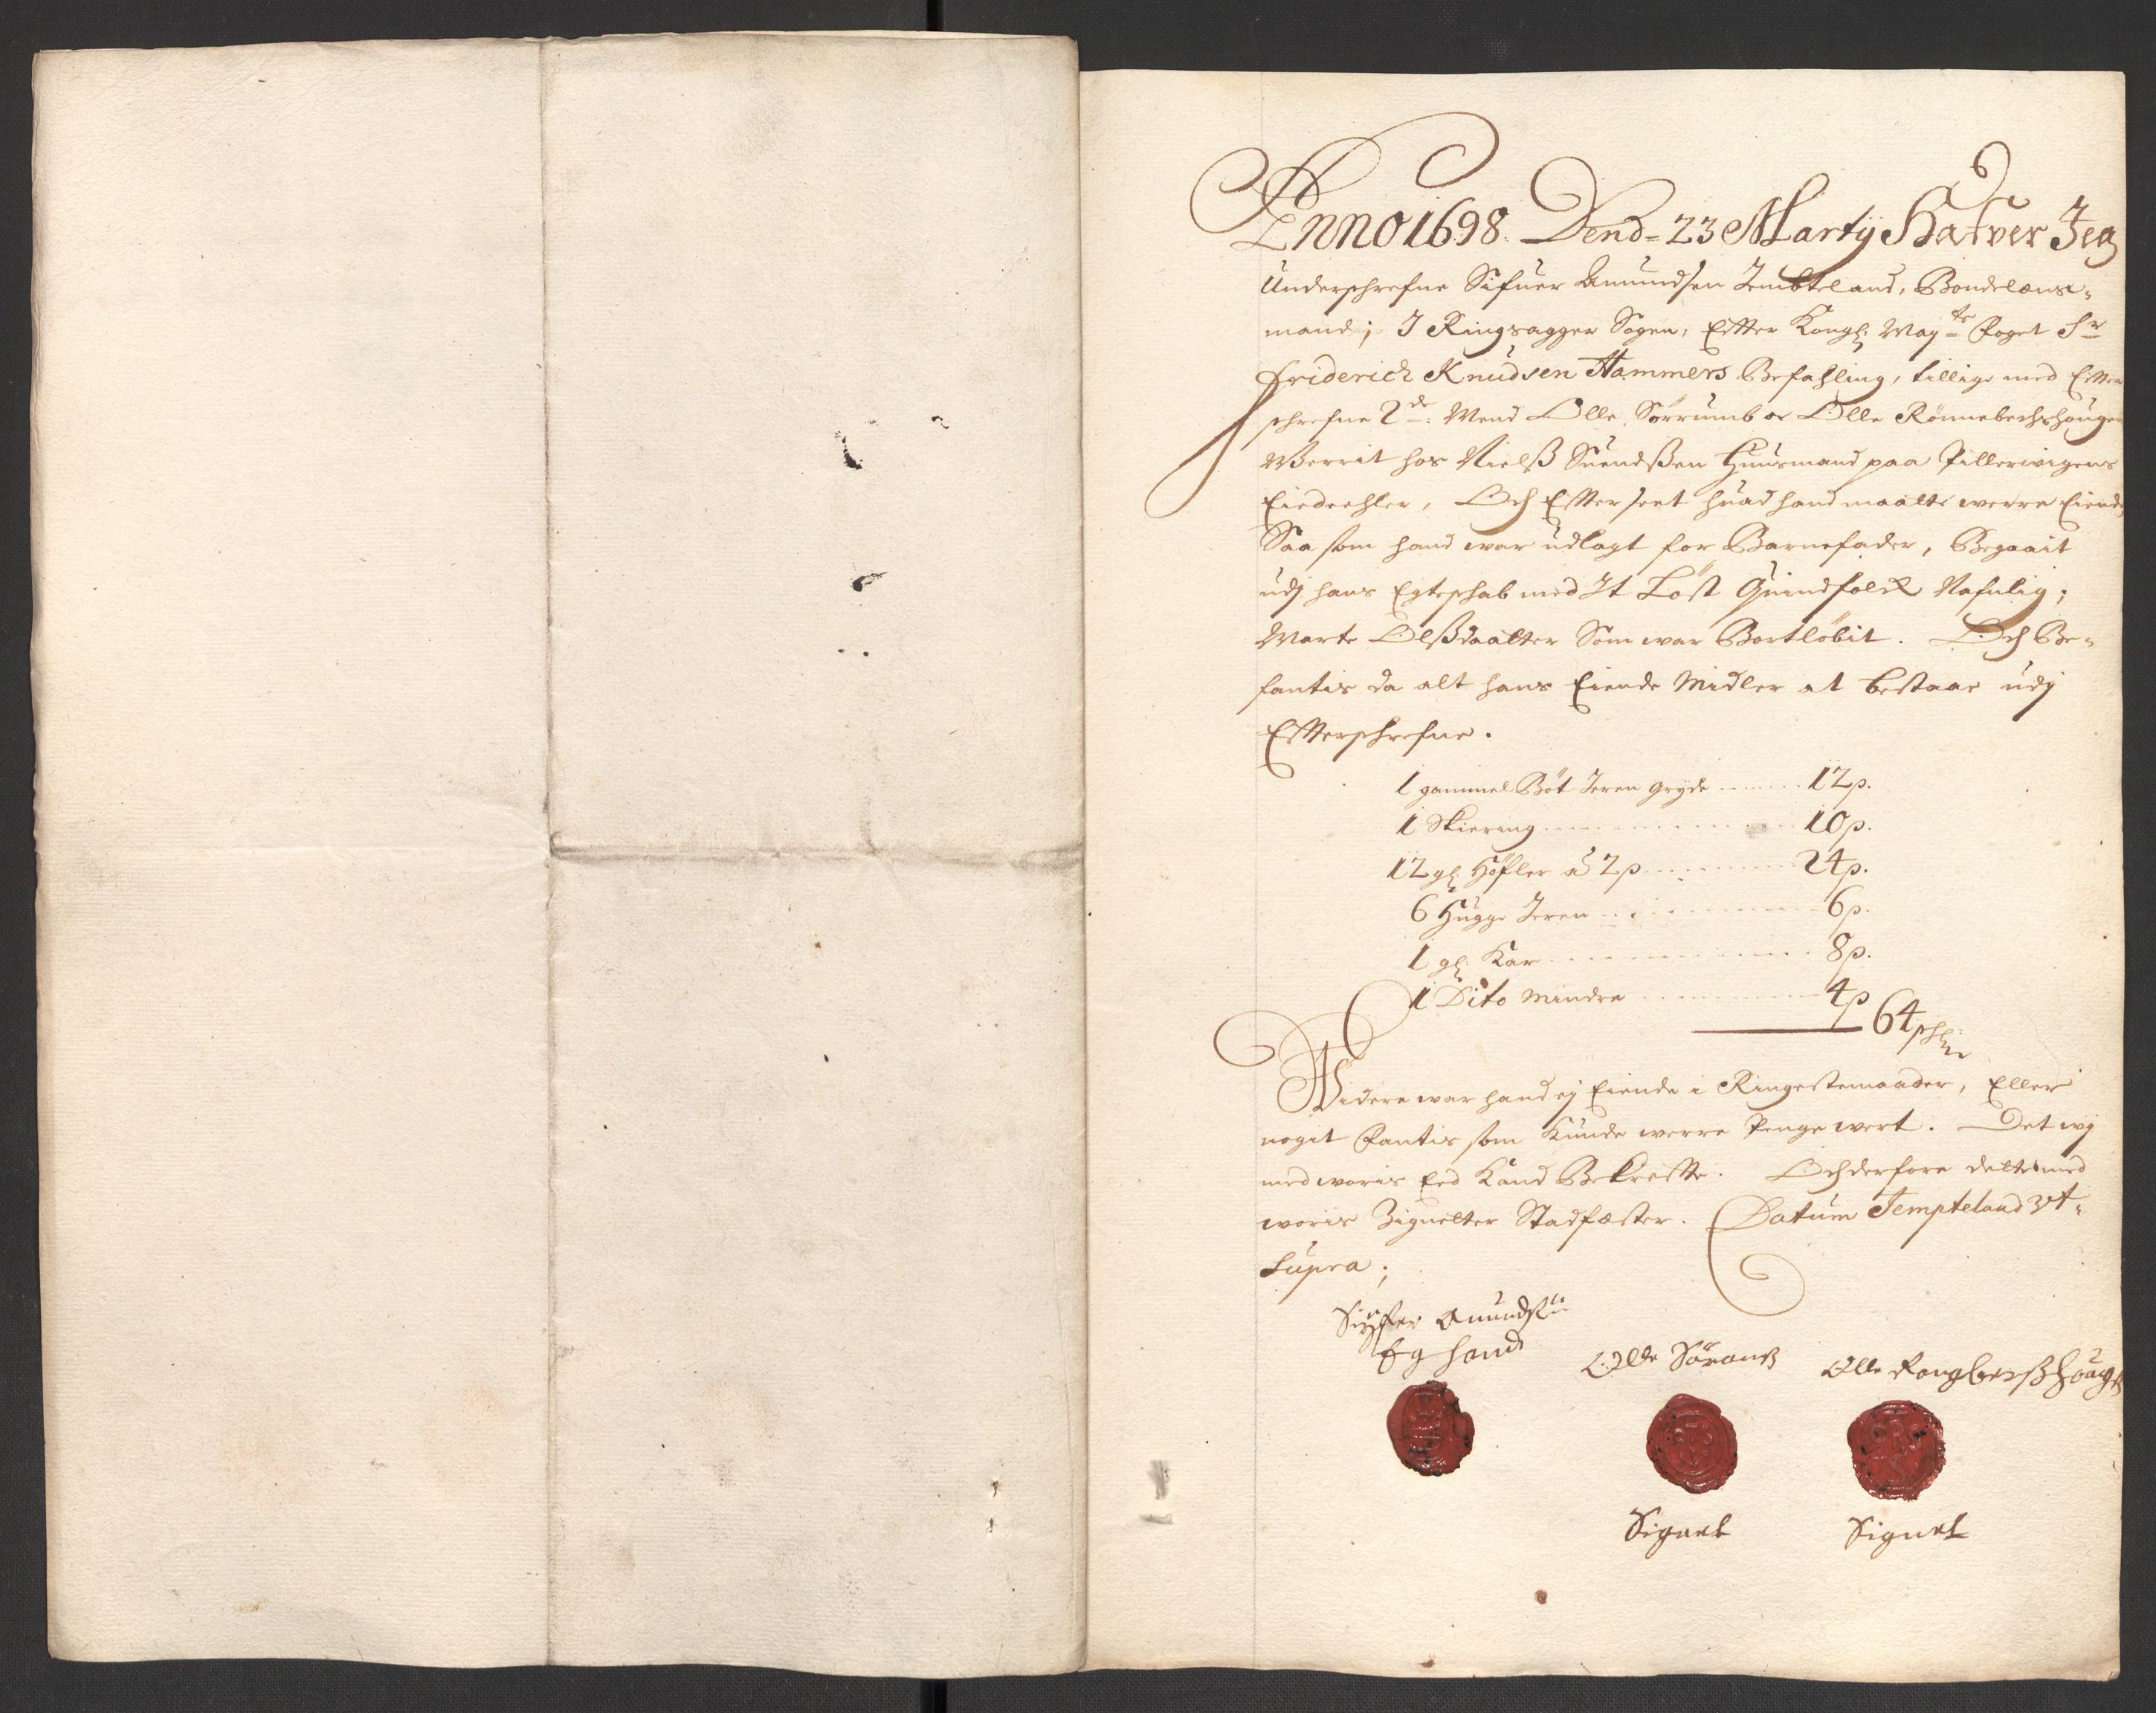 Anno 1698. Dend= 23 Martij Hafver Jeg
Underschrefne Sifuer Amundsen Jembteland, Bondelens-
mand; J Ringsagger Sogen, Effter Kongl: May:ts Foget Sr
Friderich Knudsen Hammers Befahling, tillige med Effter
schrefne 2de: Mend Olle Sörrumb oc Olle Rönnebechshougen
Werrit hos Nielß Suendßen Huusmand paa Pillerwigens
Eiedeehler, Och Effterseet huad hand maatte werre Eiende
Saa som hand war udlagt for Barnefader, Begaait
udj hans Egteschab med It Löst Quindfolck Nafnlig;
Marte Olßdaatter Som war Bortlöbit. Och Be-
fantis da alt hans Eiende Midler at bestaae udj
Effterschrefne.
1 gammel Böt Jeren gryde ....... 12 p.
1 Skiering ....... 10 p.
12 gl: Höfler a 2 p ....... 24 p.
6 Hugge Jeren ....... 6 p.
1 gl: Kar ....... 8 p.
1 Dito mindre ....... 4 p
64 schl:
Widere war hand ej Eiende i Ringestemaader, Eller
nogit Fantis som Kunde werre Penge wert. Det wj
med woris Eed Kand Bekreffte. Och derfore dette med
woris Zignetter Stadfæster. Datum Jempteland vt-
supra;
Siffer Amundsen
Eg hand
Olle Söromb
Olle Rongberßhoug
Signet
Signet